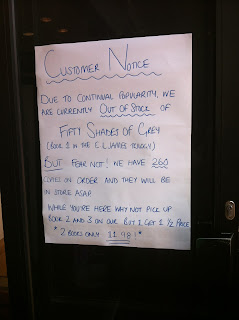 CUSTOMER NOTICE
DUE TO CONTINUAL POPULARITY, WE
ARE CURRENTLY OUT OF STOCK OF
FIFTY SHADES OF GREY
(BOOK 1 IN THE E.L JAMES TRILOGY)
BUT FEAR NOT! WE HAVE 260
COPIES ON ORDER AND THEY WILL BE
IN STORE ASAP.
WHILE YOU'RE HERE WHY NOT PICK UP
BOOK 2 AND 3 ON OUR BUY 1 GET 1 ½ PRICE
* 2 BOOKS ONLY 11.98! *